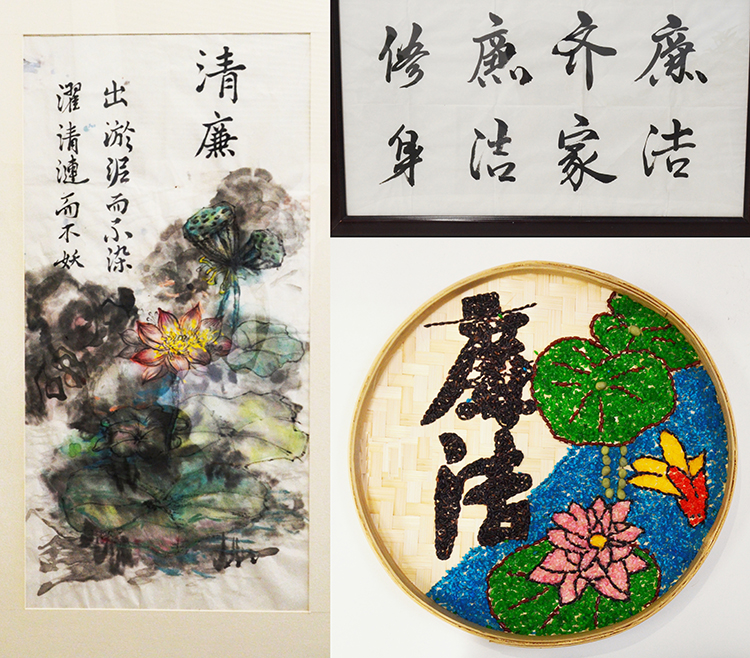 清廉
出淤泥而不染
濯清漣而不妖
廉洁
齐家
廉洁
修身
廉洁